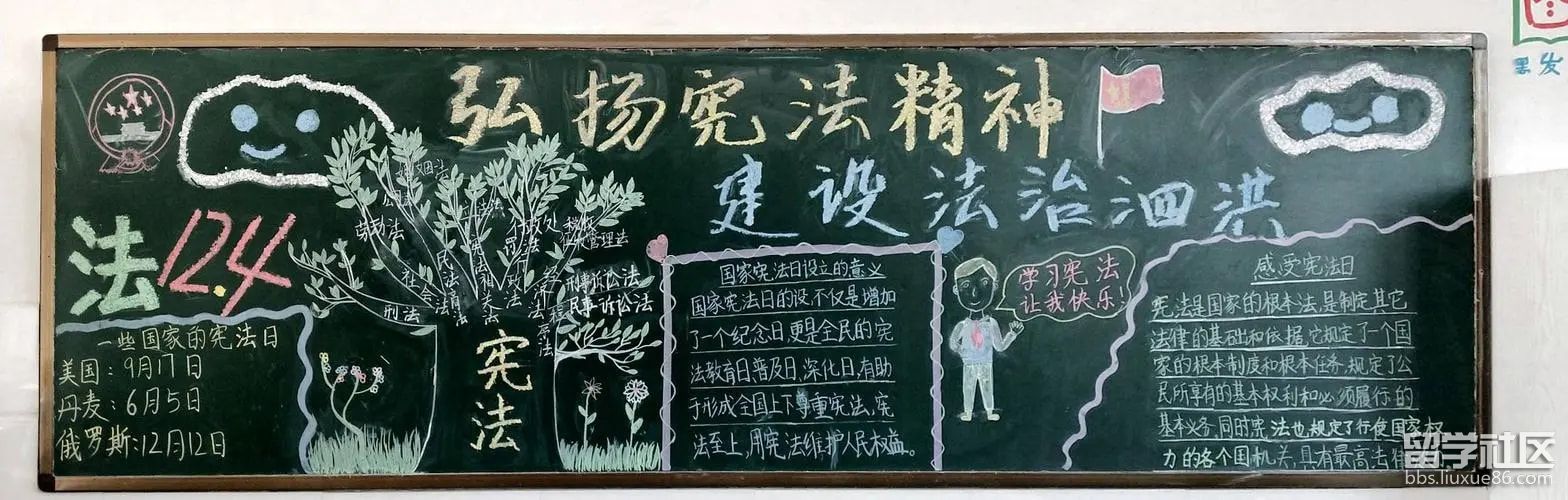 弘扬宪法精神
建设法治泗洪
法 12.4
一些国家的宪法日
美国：9月17日
丹麦：6月5日
俄罗斯：12月12日
劳动法
社会法
刑法
行政处罚法
税收征收管理法
刑事诉讼法
民事诉讼法
宪法
国家宪法日设立的意义
国家宪法日的设不仅是增加
了一个纪念日，更是全民的宪
法教育日、普及日、深化日，有助
于形成全国上下尊重宪法、宪
法至上，用宪法维护人民权益。
学习宪法
让我快乐！
感受宪法日
宪法是国家的根本法，是制定其它
法律的基础和依据，它规定了一个国
家的根本制度和根本任务，规定了公
民所享有的基本权利和必须履行的
基本义务，同时宪法也规定了行使国家权
力的各个国机关，具有最高法
留学社区
bbs.liuxue86.com